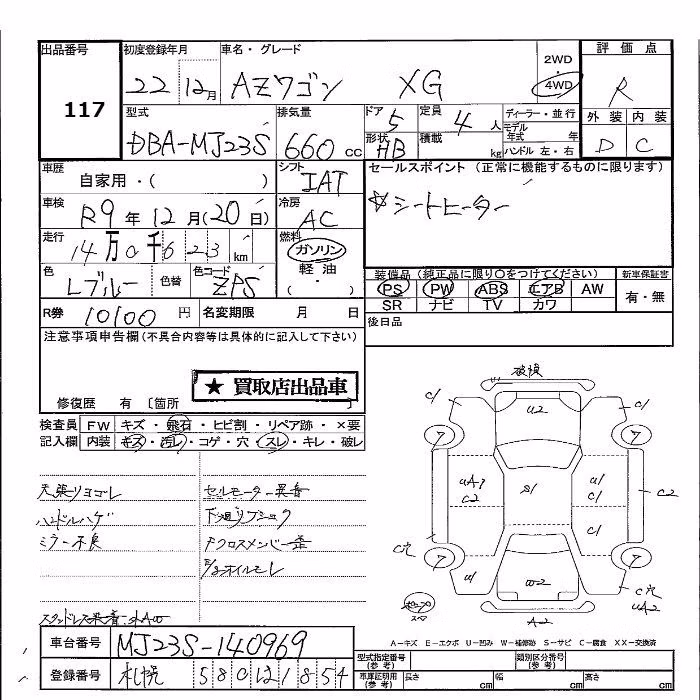 出品番号
117
初度登録年月
22年12月
車名・グレード
AZワゴン XG
2WD
4WD
評価点
R
型式
DBA-MJ23S
排気量
660 cc
ドア 5
形状 HB
定員 4 人
積載 kg
ディーラー・並行
モデル年式 年
ハンドル 左・右
外装 内装
D C
車歴
自家用・( )
シフト
IAT
車検
R9年12月(20日)
冷房
AC
走行
14万0千623km
燃料
ガソリン
軽油
( ・ )
色
Lブルー
色替
色コード
ZPS
R券 10100円
名変期限 月 日
セールスポイント(正常に機能するものに限ります)
☆シートヒーター
装備品(純正品に限り○をつけてください)
新車保証書
PS PW ABS エアB AW
SR ナビ TV カワ
有・無
後日品
注意事項申告欄(不具合内容等は具体的に記入して下さい)
★ 買取店出品車
修復歴 有 〔箇所 〕
検査員記入欄
FW キズ・飛石・ヒビ割・リペア跡・×要
内装 キズ・汚レ・コゲ・穴・スレ・キレ・破レ
天張リヨゴレ
ハンドルハゲ
ミラー不良
セルモーター異音
下廻リブショク
Fクロスメンバー歪
E/gオイルモレ
破損
C1
U2
C1
ア
ア
UA1
C2
S1
U1
C1
C2
C1
C穴
ア
ア
U1
W2
C穴
UA2
A2
スペア
A-キズ E-エクボ U-凹み W-補修跡 S-サビ C-腐食 XX-交換済
車台番号
MJ23S-140969
登録番号
札幌 580 い 1854
型式指定番号(参考)
類別区分番号(参考)
車庫証明用(参考)
長さ cm
幅 cm
高さ cm